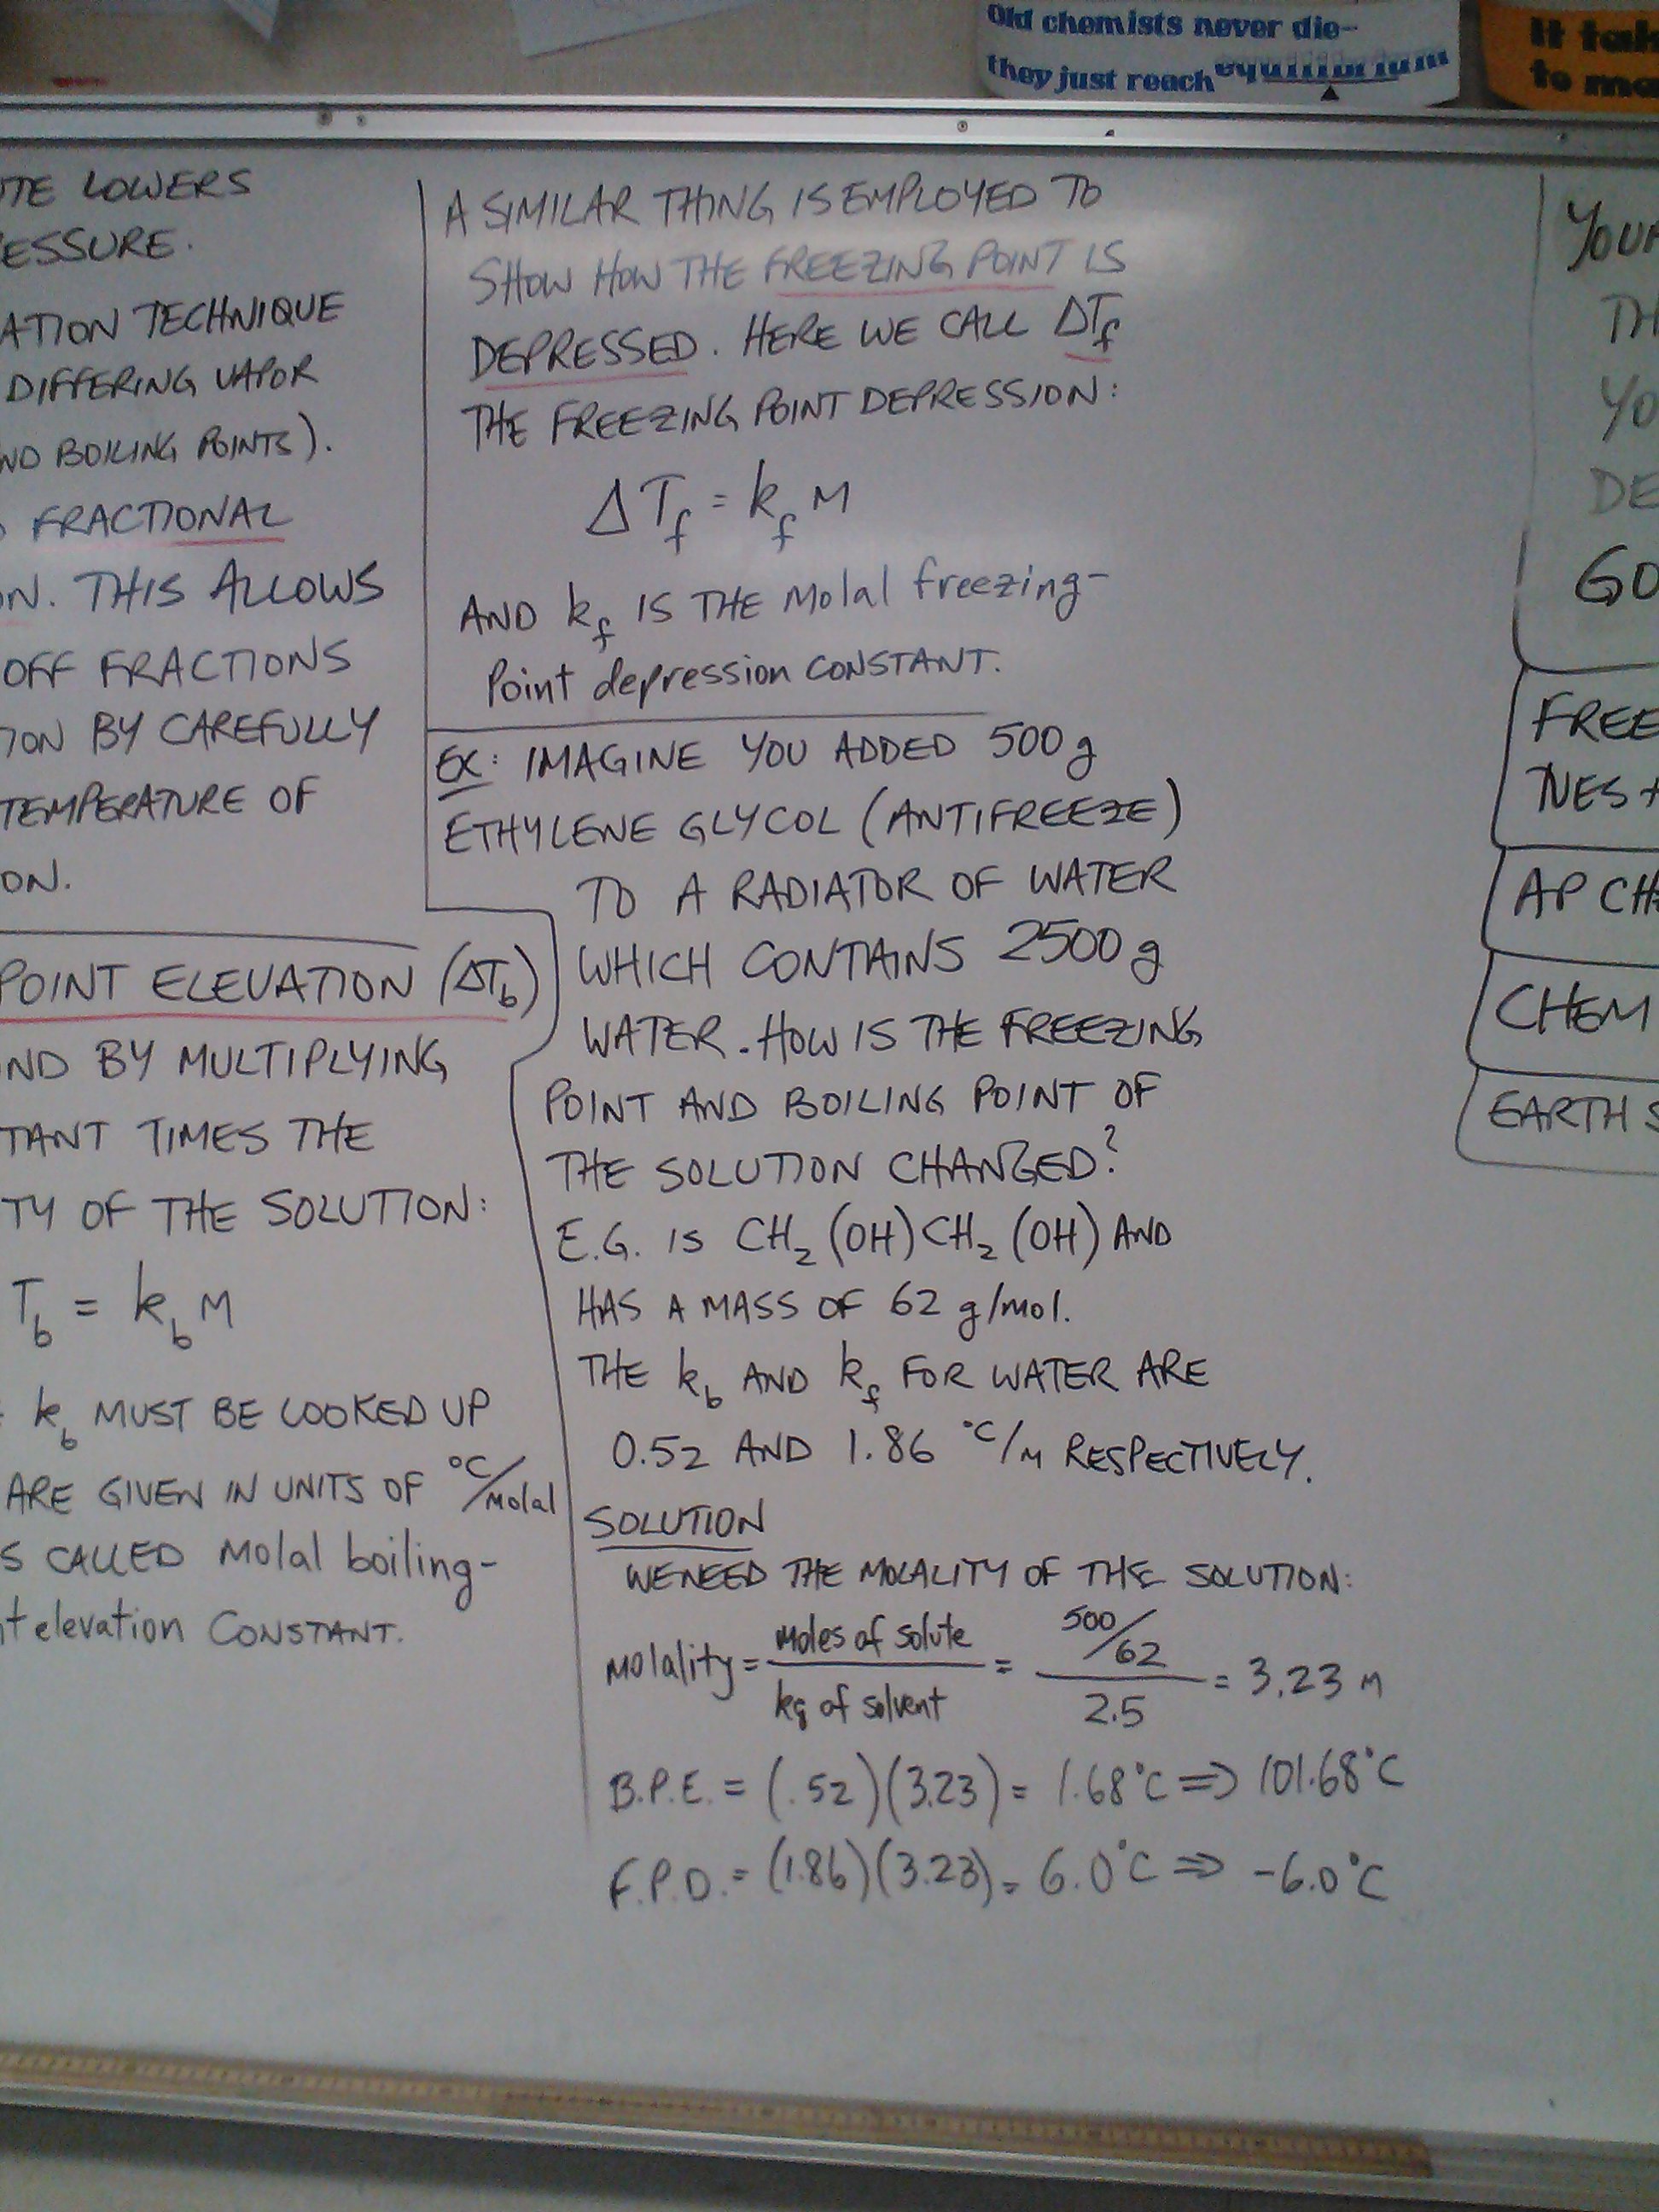 Old chemists never die-
they just reach equilibrium
It tak
to ma
UTE LOWERS
ESSURE.
ATION TECHNIQUE
DIFFERING VAPOR
ND BOILING POINTS).
FRACTIONAL
ON. THIS ALLOWS
OFF FRACTIONS
ION BY CAREFULLY
TEMPERATURE OF
ON.
POINT ELEVATION (ΔT_b)
ND BY MULTIPLYING
TANT TIMES THE
TY OF THE SOLUTION:
T_b = k_b M
k_b MUST BE LOOKED UP
ARE GIVEN IN UNITS OF °C/Molal
S CALLED Molal boiling-
t elevation CONSTANT.
A SIMILAR THING IS EMPLOYED TO
SHOW HOW THE FREEZING POINT IS
DEPRESSED. HERE WE CALL ΔT_f
THE FREEZING POINT DEPRESSION:
ΔT_f = k_f M
AND k_f IS THE Molal freezing-
Point depression CONSTANT.
EX: IMAGINE YOU ADDED 500 g
ETHYLENE GLYCOL (ANTIFREEZE)
TO A RADIATOR OF WATER
WHICH CONTAINS 2500 g
WATER. HOW IS THE FREEZING
POINT AND BOILING POINT OF
THE SOLUTION CHANGED?
E.G. IS CH₂(OH)CH₂(OH) AND
HAS A MASS OF 62 g/mol.
THE k_b AND k_f FOR WATER ARE
0.52 AND 1.86 °C/M RESPECTIVELY.
SOLUTION
WE NEED THE MOLALITY OF THE SOLUTION:
Molality = moles of solute / kg of solvent = 500/62 / 2.5 = 3.23 M
B.P.E. = (.52)(3.23) = 1.68°C ⇒ 101.68°C
F.P.D. = (1.86)(3.23) = 6.0°C ⇒ -6.0°C
YOUR
TH
YO
DE
GO
FREE
TUES +
AP CHE
CHEM
EARTH S